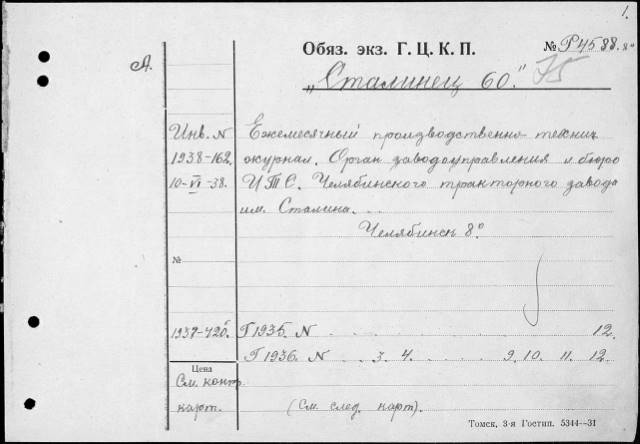 1.
Обяз. экз. Г. Ц. К. П. № Р4588.
А.
„Сталинец 60." 75
Инв. N Ежемесячный производственно технич.
1938-162. журнал. Орган заводоуправления и бюро
10-VI-38. И.Т.С. Челябинского тракторного завода
им. Сталина...
Челябинск 8°.
№
Г1935. N . . . . 12.
Г1936. N . . . 3. 4. . . . 9. 10. 11. 12.
Цена
См. контр.
карт. (См. след. карт).
Томск, 3-я Гостип. 5344—31